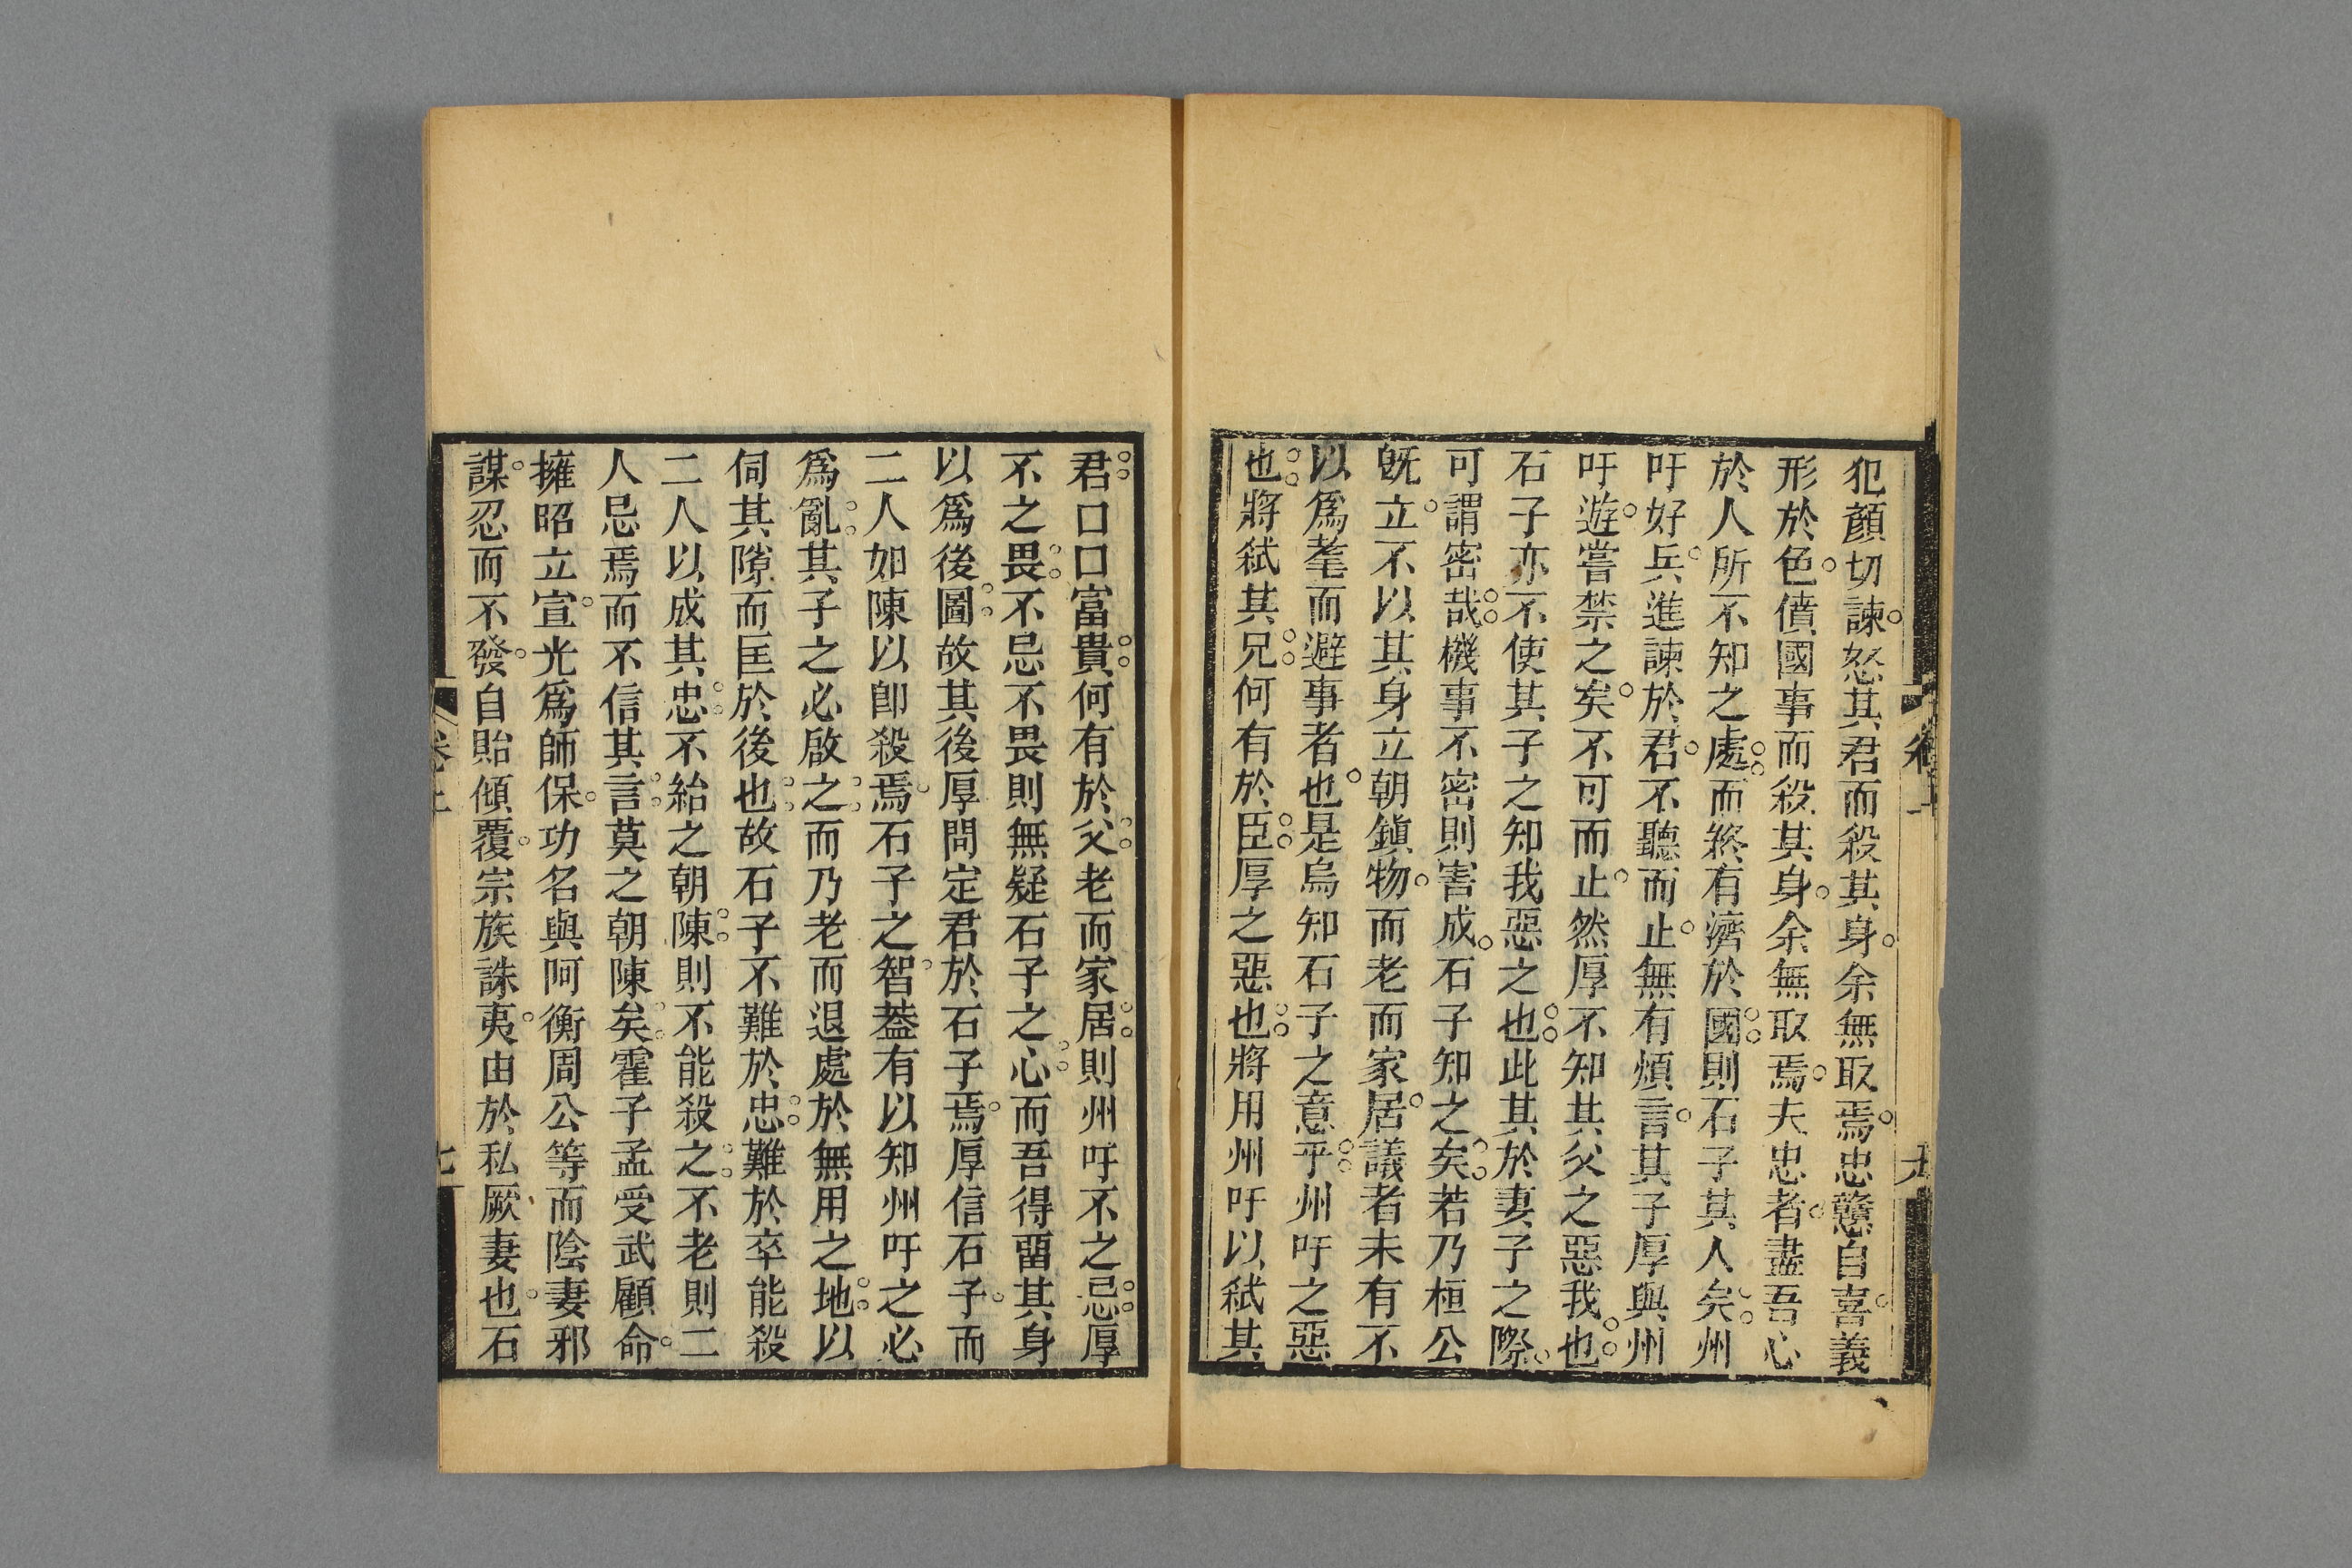 犯顏切諫怒其君而殺其身余無取焉忠戇自喜義
形於色僨國事而殺其身余無取焉夫忠者盡吾心
於人所不知之處而終有濟於國則石子其人矣州
吁好兵進諫於君不聽而止無有煩言其子厚與州
吁遊嘗禁之矣不可而止然厚不知其父之惡我也
石子亦不使其子之知我惡之也此其於妻子之際
可謂密哉機事不密則害成石子知之矣若乃桓公
旣立不以其身立朝鎭物而老而家居議者未有不
以爲耄而避事者也是烏知石子之意乎州吁之惡
也將弒其兄何有於臣厚之惡也將用州吁以弒其
君口口富貴何有於父老而家居則州吁不之忌厚
不之畏不忌不畏則無疑石子之心而吾得畱其身
以爲後圖故其後厚問定君於石子焉厚信石子而
二人如陳以卽殺焉石子之智葢有以知州吁之必
爲亂其子之必啟之而乃老而退處於無用之地以
伺其隙而匡於後也故石子不難於忠難於卒能殺
二人以成其忠不紿之朝陳則不能殺之不老則二
人忌焉而不信其言莫之朝陳矣霍子孟受武顧命
擁昭立宣光爲師保功名與阿衡周公等而陰妻邪
謀忍而不發自貽傾覆宗族誅夷由於私厥妻也石
卷上
七